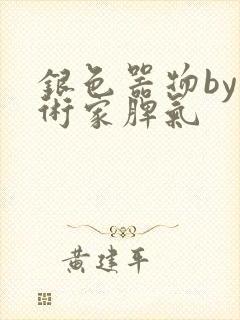 銀色器物by
術家脾氣
黃建平